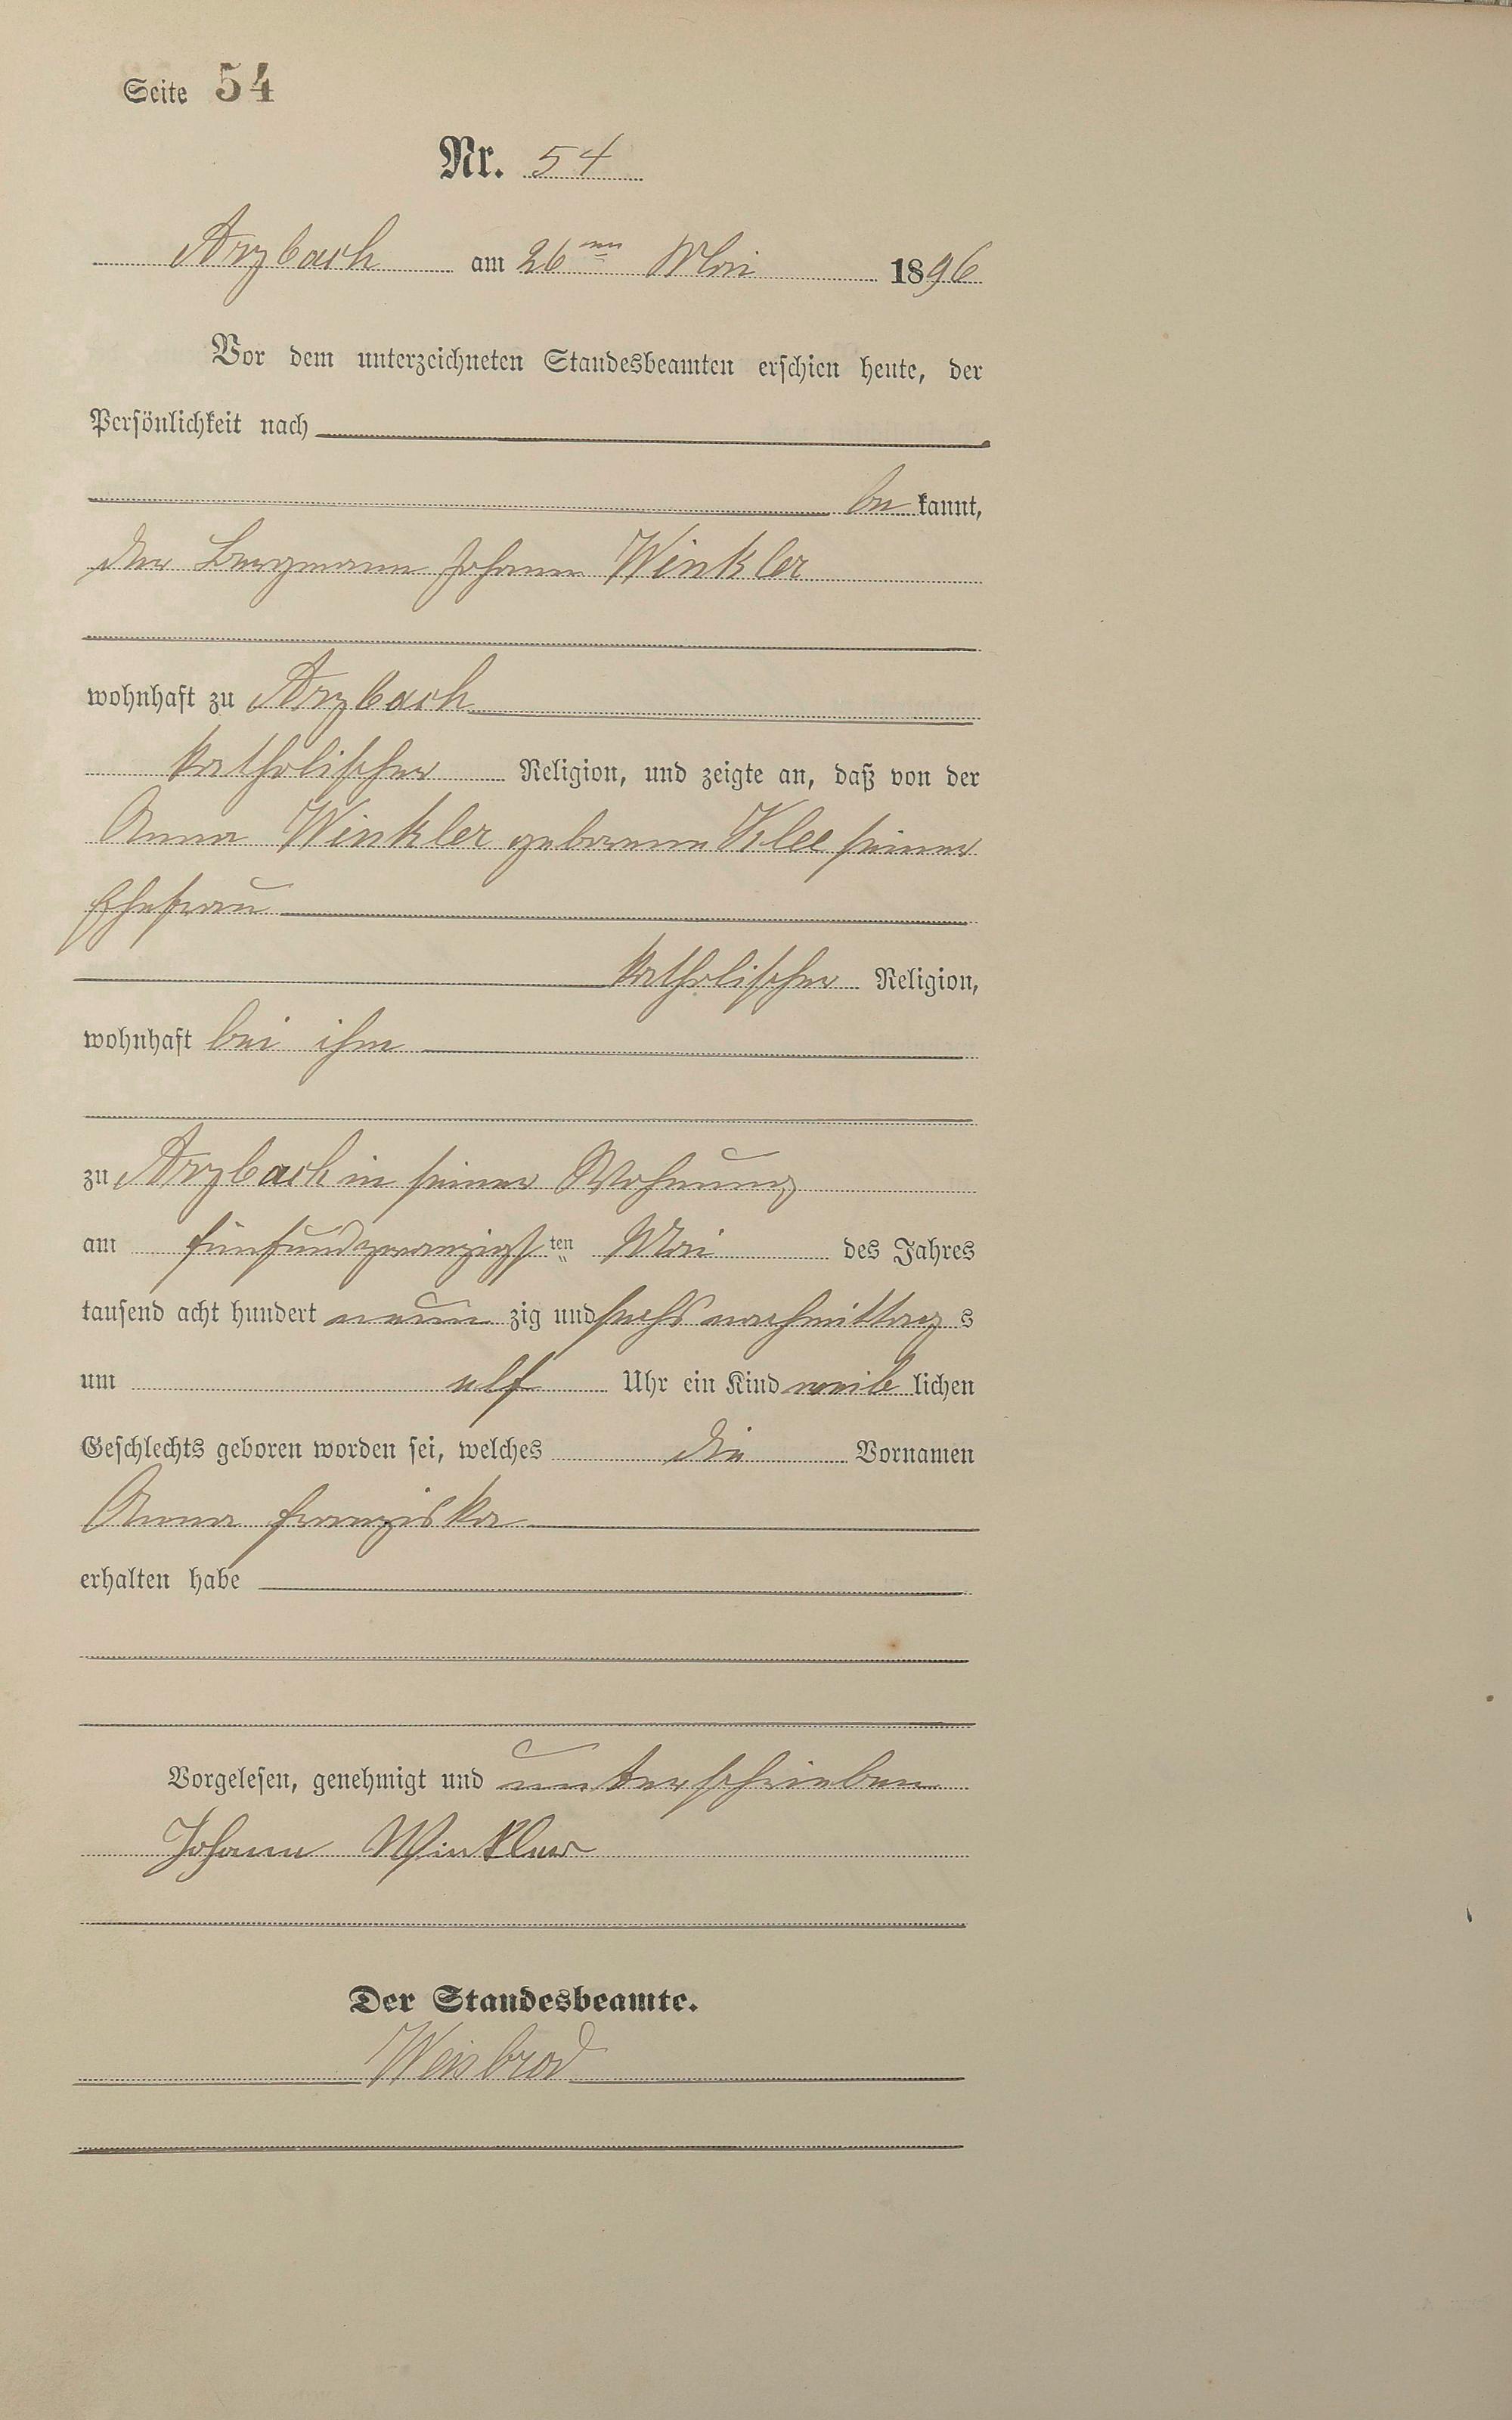 Seite 54
Nr. 54
Arzbach am 26ten Mai 1896
Vor dem unterzeichneten Standesbeamten erschien heute, der
Persönlichkeit nach
be kannt,
der Bergmann Johann Winkler
wohnhaft zu Arzbach
katholischer Religion, und zeigte an, daß von der
Anna Winkler geborene Klee seiner
Ehefrau
katholischer Religion,
wohnhaft bei ihm
zu Arzbach in seiner Wohnung
am fünfundzwanzigsten Mai des Jahres
tausend acht hundert neun zig und sechs nachmittag s
um elf Uhr ein Kind weib lichen
Geschlechts geboren worden sei, welches die Vornamen
Anna Franziska
erhalten habe
Vorgelesen, genehmigt und unterschrieben
Johann Winkler
Der Standesbeamte.
Weisbrod